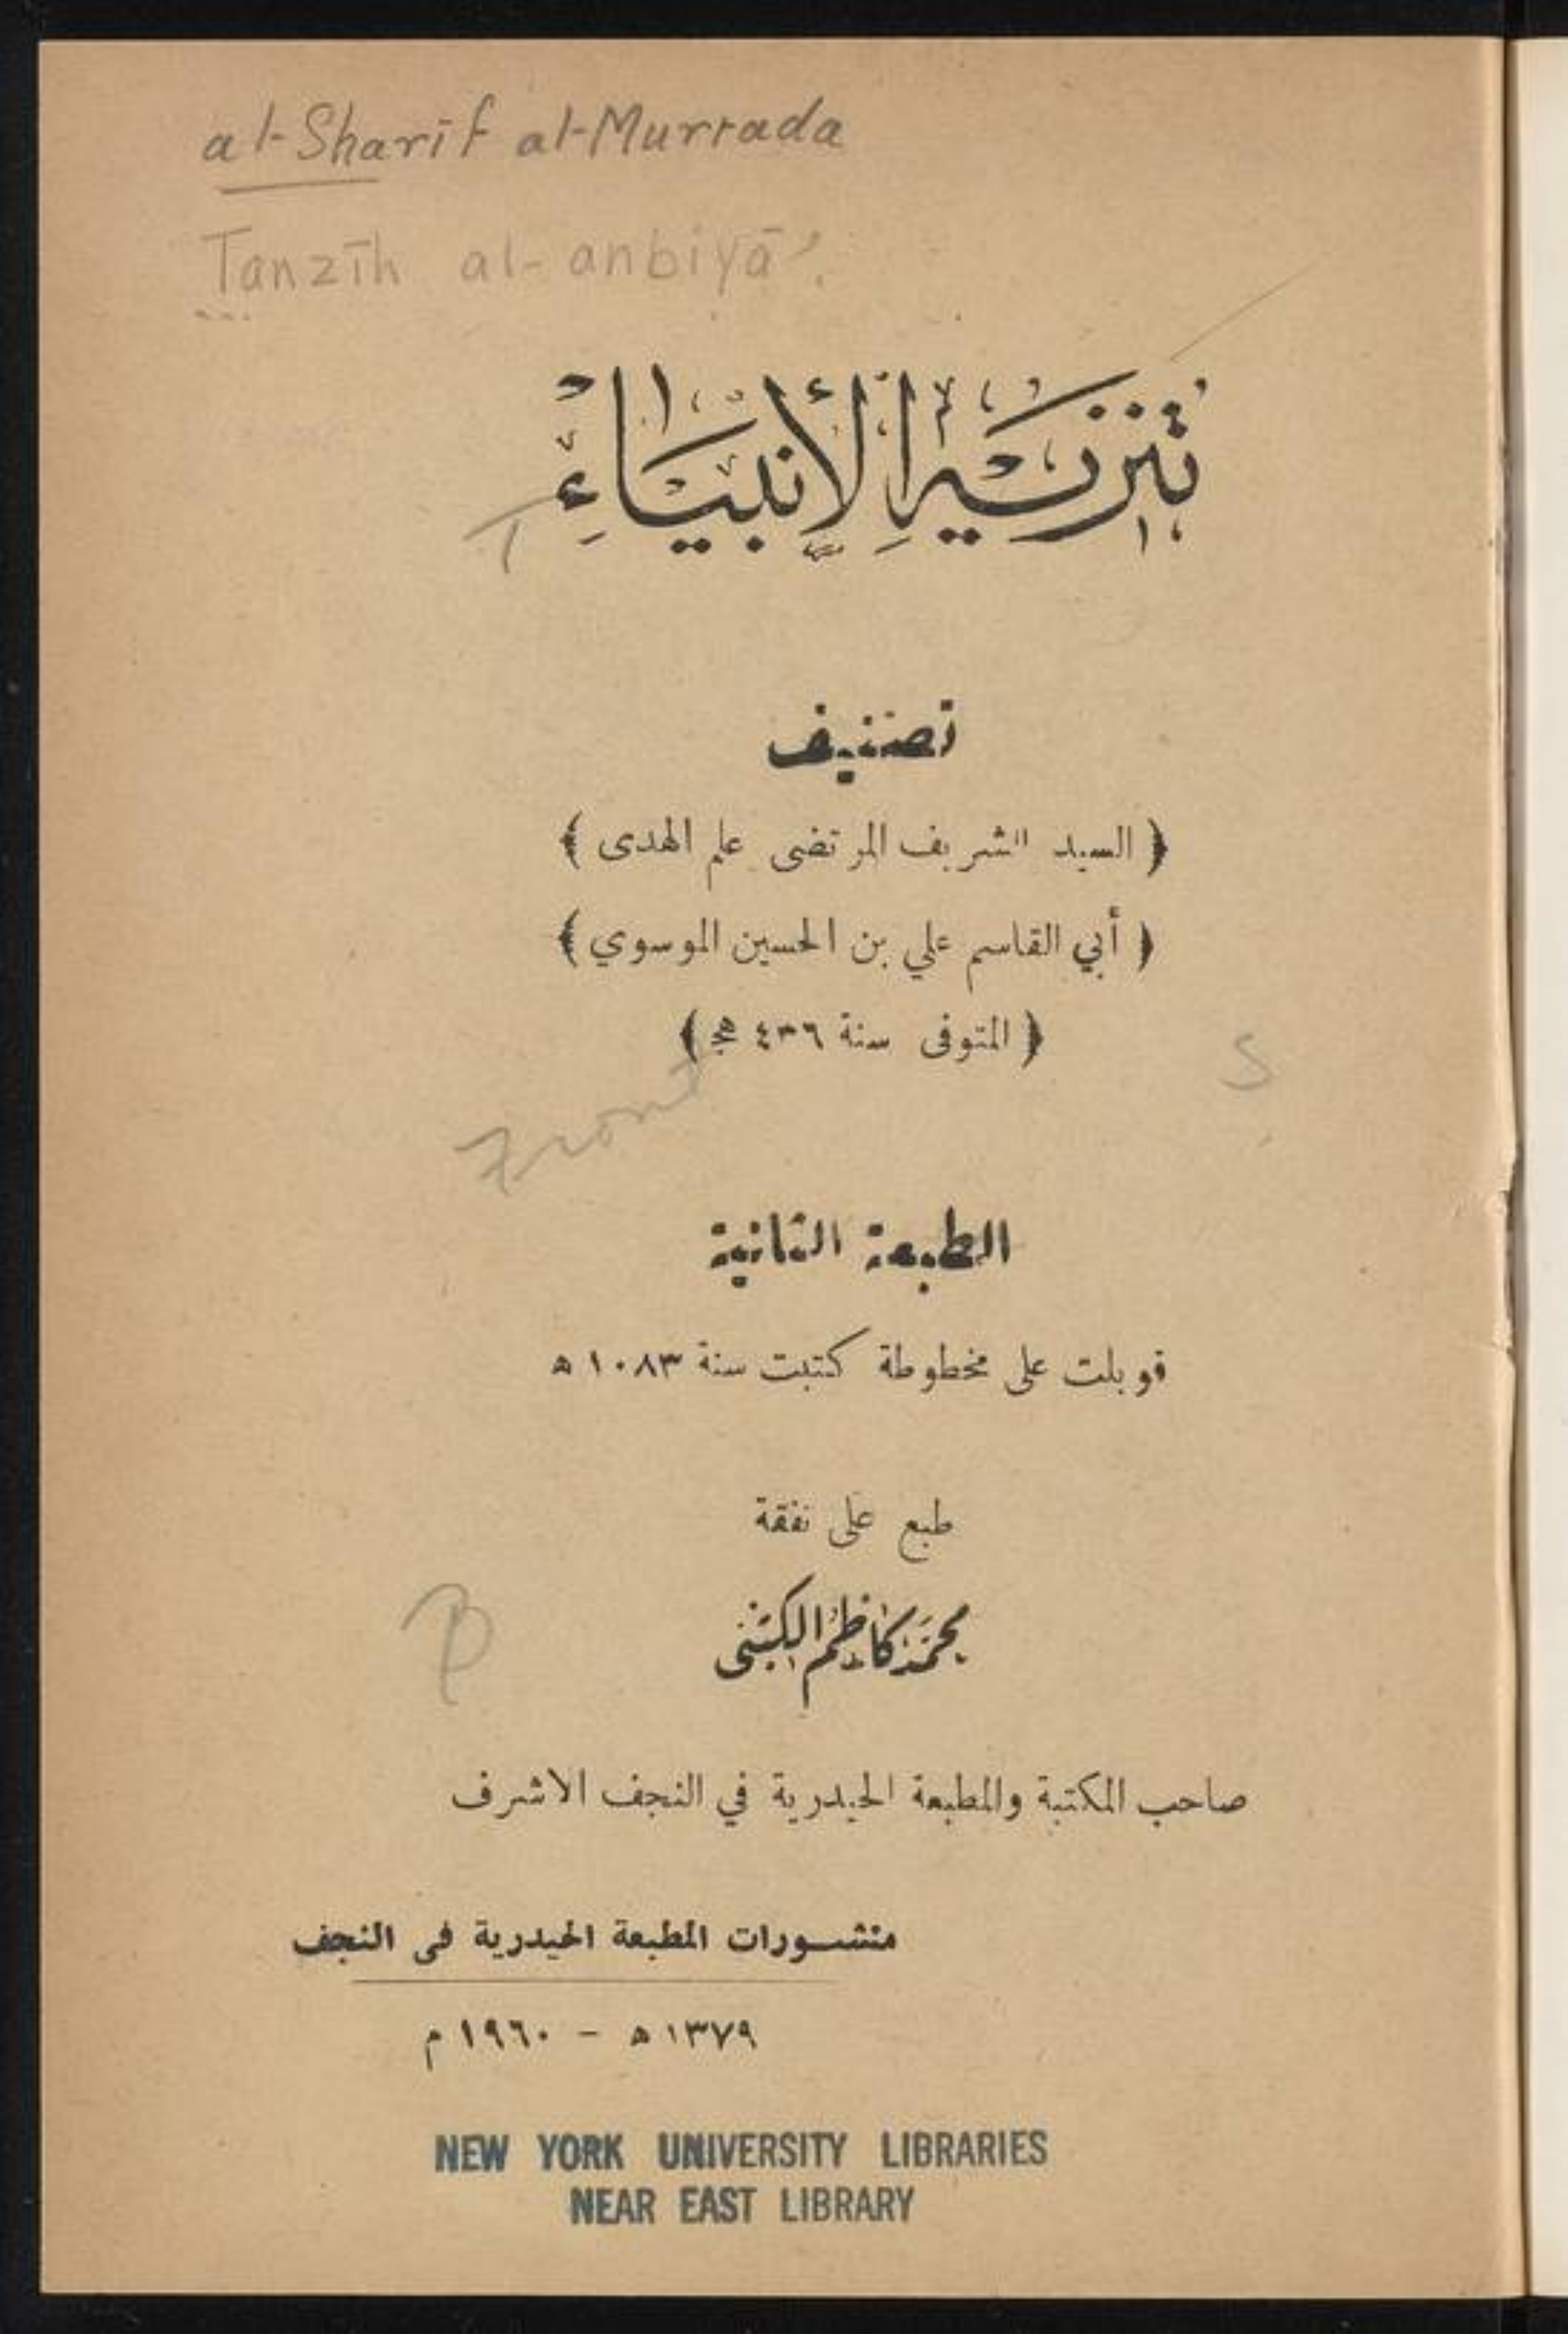 al-Sharīf al-Murtada
Tanzīh al-anbiyā'.
تنزيه الأنبياء
تصنيف
﴿ السيد الشريف المرتضى علم الهدى ﴾
﴿ أبي القاسم علي بن الحسين الموسوي ﴾
﴿ المتوفى سنة ٤٣٦ هج ﴾
S
Front
الطبعة الثانية
قوبلت على مخطوطة كتبت سنة ١٠٨٣ ه
طبع على نفقة
محمد كاظم الكتبي
صاحب المكتبة والمطبعة الحيدرية في النجف الاشرف
منشورات المطبعة الحيدرية في النجف
١٣٧٩ ه - ١٩٦٠ م
NEW YORK UNIVERSITY LIBRARIES
NEAR EAST LIBRARY